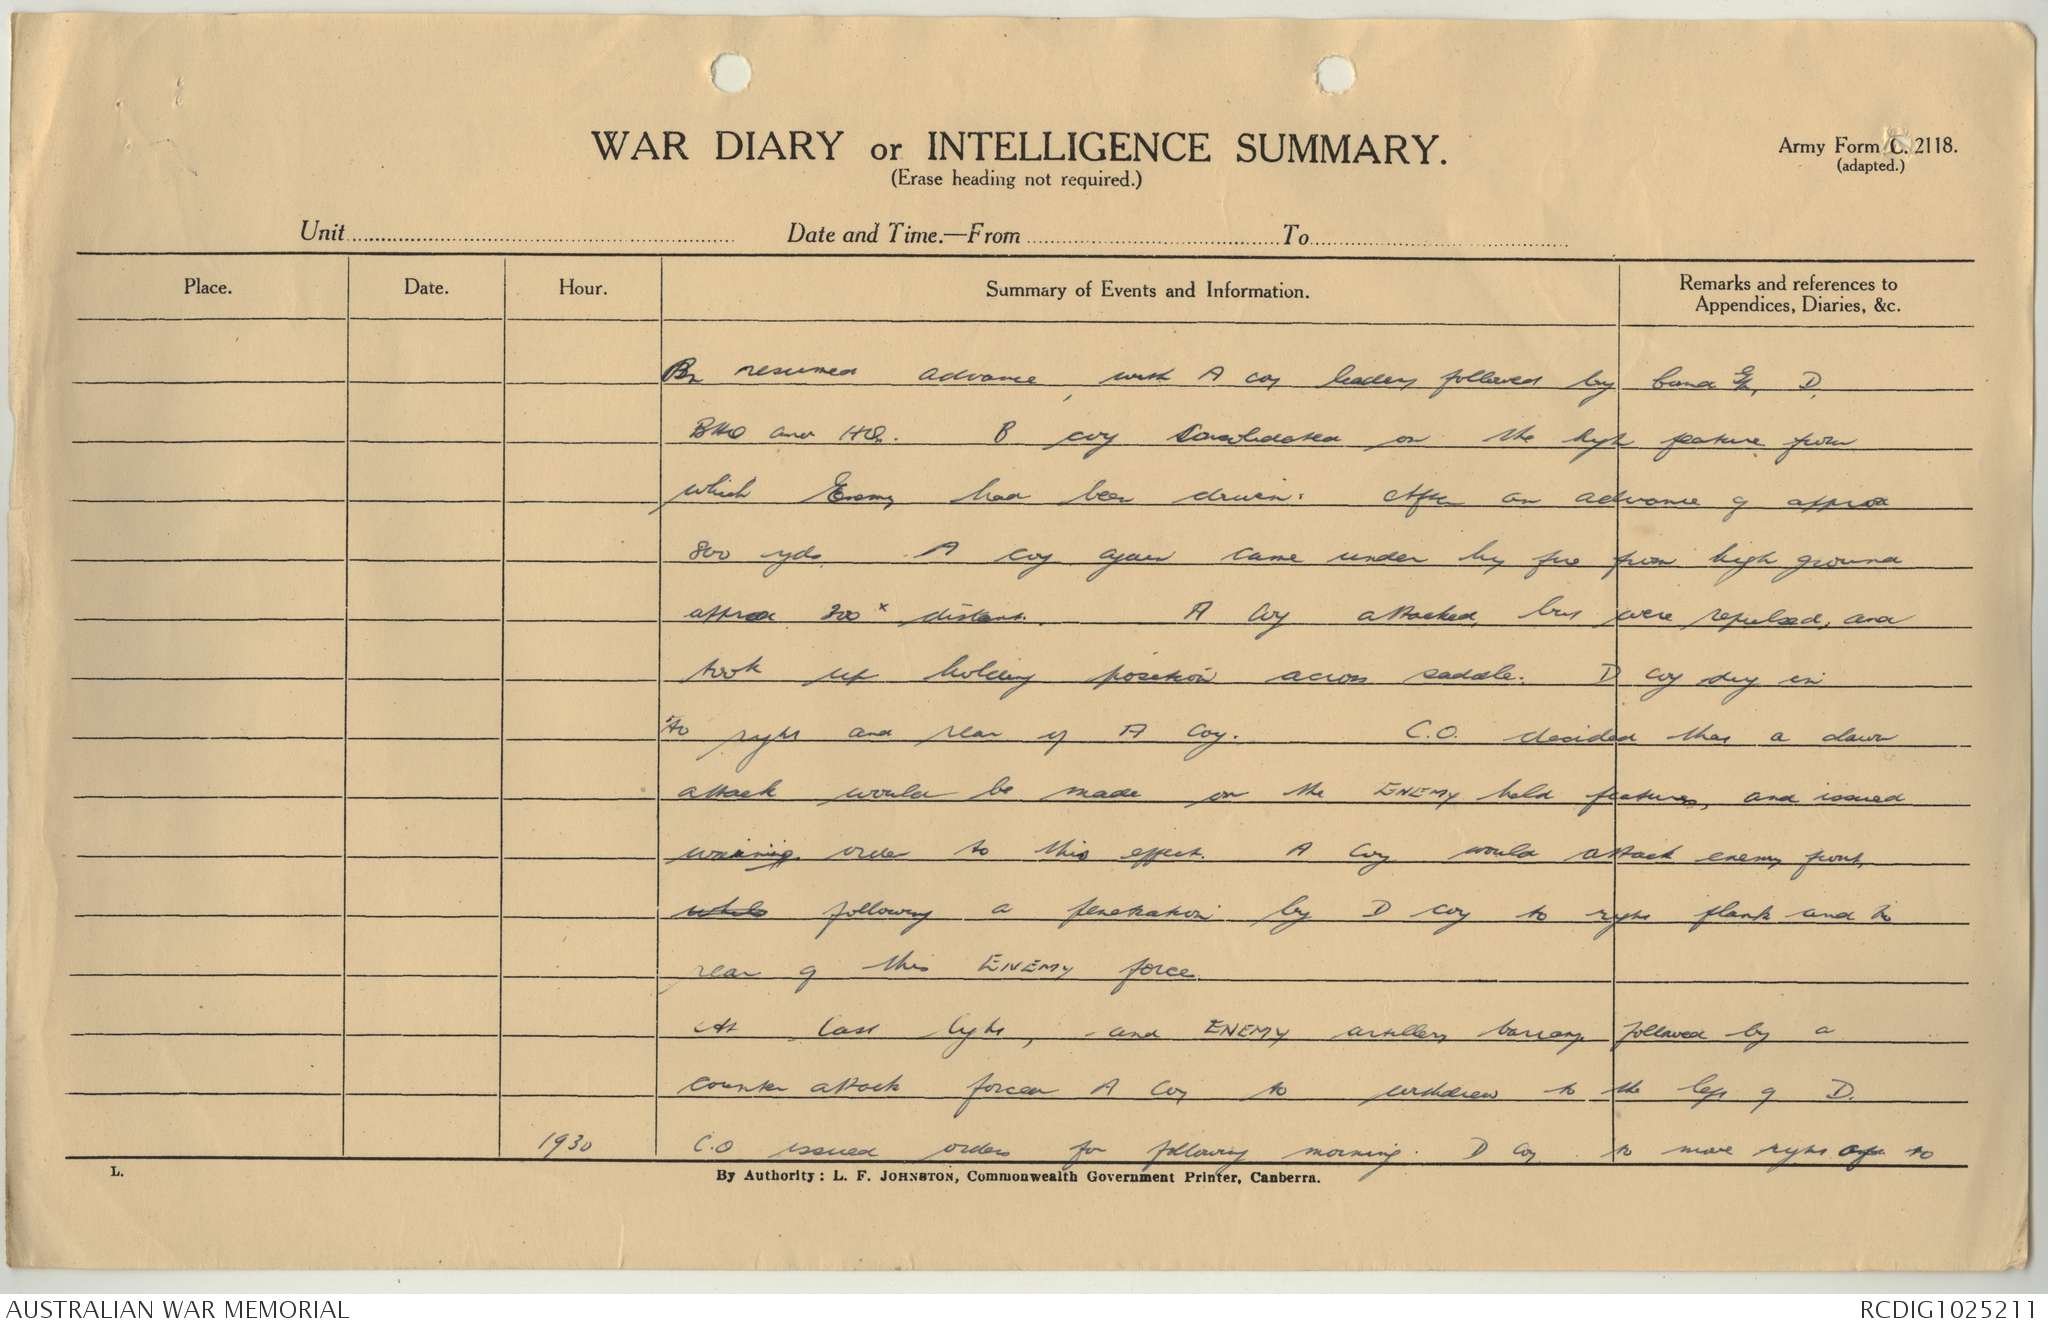 WAR DIARY or INTELLIGENCE SUMMARY.
(Erase heading not required.)
Army Form C. 2118.
(adapted.)
Unit
Date and Time.—From
To
Place.
Date.
Hour.
Summary of Events and Information.
Remarks and references to
Appendices, Diaries, &c.
Bn resumed advance, with A coy leading followed by D,
BHQ and HQ. B coy consolidated on the high feature from
which Enemy had been driven. After an advance of approx
800 yds. A coy again came under hy fire from high ground
approx 300 x distant. A Coy attacked, but were repulsed, and
took up holding position across saddle. D coy dug in
to right and rear of A Coy. C.O. decided that a dawn
attack would be made on the ENEMY held features, and issued
warning order to this effect. A Coy would attack enemy front,
while following a penetration by D coy to right flank and to
rear of this ENEMY force.
At last light, and ENEMY artillery barrage followed by a
counter attack forced A Coy to withdrew to the left of D.
1930 C.O issued orders for following morning. D Coy to move right to
L.
By Authority: L. F. JOHNSTON, Commonwealth Government Printer, Canberra.
AUSTRALIAN WAR MEMORIAL
RCDIG1025211